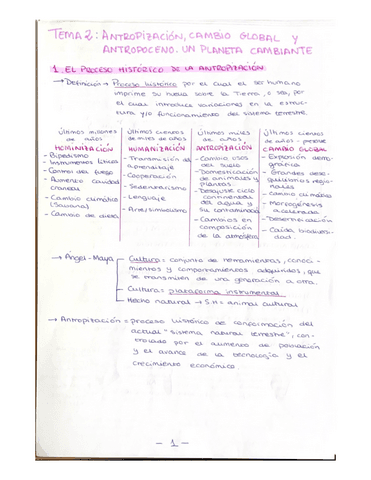 TEMA 2: ANTROPIZACIÓN, CAMBIO GLOBAL Y
ANTROPOCENO. UN PLANETA CAMBIANTE
1. EL PROCESO HISTÓRICO DE LA ANTROPIZACIÓN
→ Definición → Proceso histórico por el cual el ser humano
imprime su huella sobre la Tierra, o sea, por
el cual introduce variaciones en la estruc-
tura y/o funcionamiento del sistema terrestre.
Últimos millones
de años
HOMINIZACIÓN
- Bipedismo
- Instrumentos líticos
- Control del fuego
- Aumento cavidad
craneal
- Cambio climático
(Sabana)
- Cambio de dieta
Últimos cientos
de miles de años
HUMANIZACIÓN
- Transmisión del
aprendizaje
- Cooperación
- Sedentarismo
- Lenguaje
- Arte/simbolismo
Últimos miles
de años
ANTROPIZACIÓN
- Cambio usos
del suelo
- Domesticación
de animales y
plantas.
- Desajuste ciclo
continental
del agua y
su contaminación
- Cambios en
composición
de la atmósfera
Últimos cientos
de años - presente
CAMBIO GLOBAL
- Explosión demo-
gráfica
- Grandes dese-
quilibrios regio-
nales
- Cambio climático
- Morfogénesis
acelerada
- Desertificación
- Caída biodiver-
sidad.
→ Angel-Maya
Cultura = conjunto de herramientas, conoci-
mientos y comportamientos adquiridos, que
se transmiten de una generación a otra.
Cultura = plataforma instrumental
Hecho natural → S.H = animal cultural
→ Antropización = proceso histórico de conformación del
actual "sistema natural terrestre", con-
trolado por el aumento de población
y el avance de la tecnología y el
crecimiento económico
- 1 -